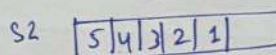 S2 5 4 3 2 1